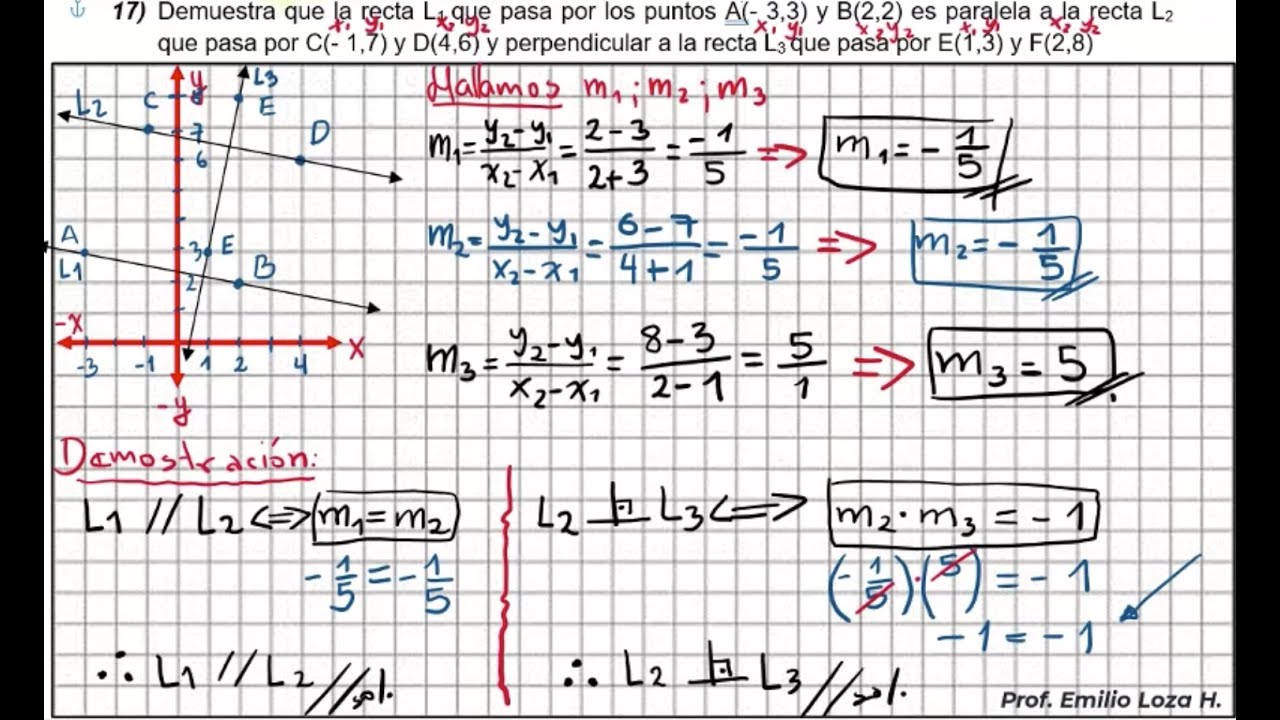 17) Demuestra que la recta L₁ que pasa por los puntos A(- 3,3) y B(2,2) es paralela a la recta L₂
x₁ y₁ x₂ y₂ x₁ y₁ x₂ y₂ x₁ y₁ x₂ y₂
que pasa por C(- 1,7) y D(4,6) y perpendicular a la recta L₃ que pasa por E(1,3) y F(2,8)
y L3
L2 C 8 E
7 D
6
A 3 E
L1 2 B
-x x
-3 -1 1 2 4
-y
Hallamos m₁ ; m₂ ; m₃
m₁ = y₂ - y₁ / x₂ - x₁ = 2 - 3 / 2 + 3 = -1 / 5 => m₁ = - 1/5
m₂ = y₂ - y₁ / x₂ - x₁ = 6 - 7 / 4 + 1 = -1 / 5 => m₂ = - 1/5
m₃ = y₂ - y₁ / x₂ - x₁ = 8 - 3 / 2 - 1 = 5 / 1 => m₃ = 5
Demostración:
L1 // L2 <=> m₁ = m₂
- 1/5 = - 1/5
∴ L1 // L2 // sol.
L2 ⊥ L3 <=> m₂ · m₃ = - 1
(- 1/5) · (5) = - 1
- 1 = - 1
∴ L2 ⊥ L3 // sol.
Prof. Emilio Loza H.